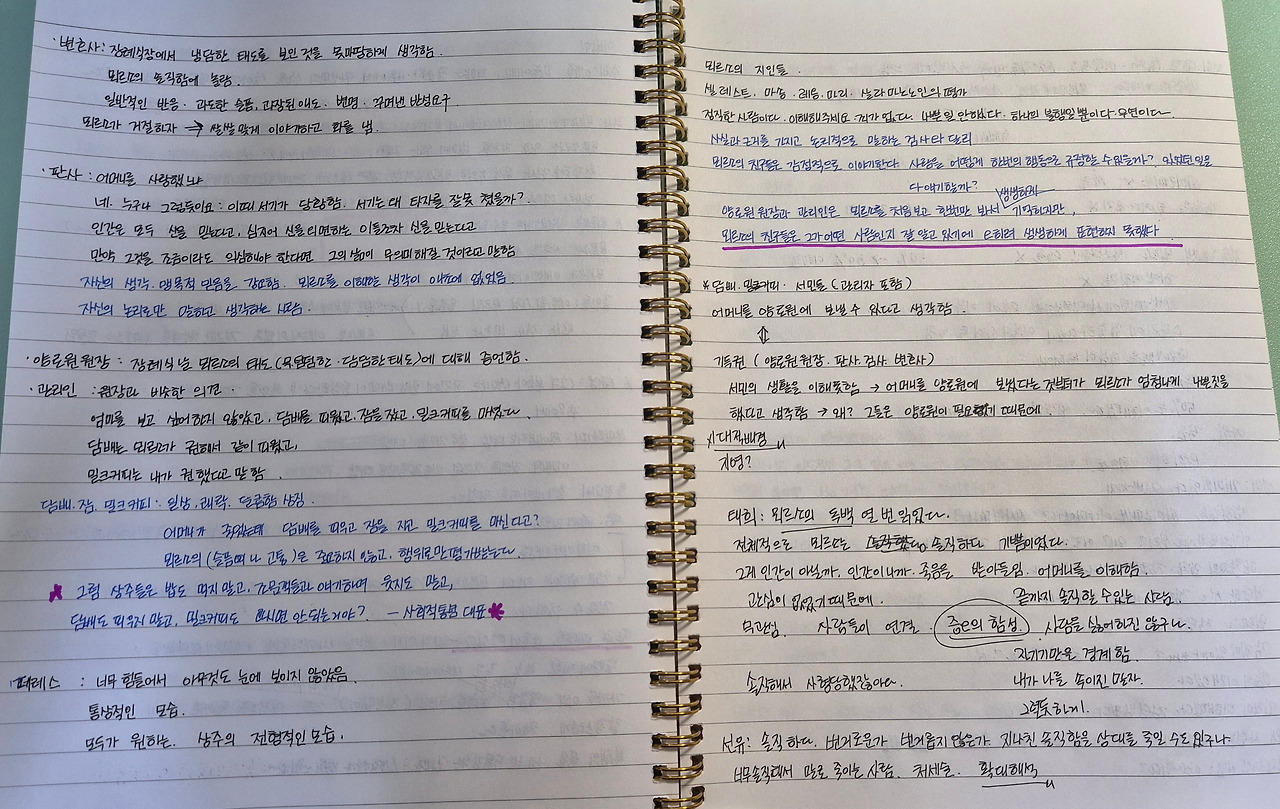 · 변호사: 장례식장에서 냉담한 태도를 보인것을 못마땅하게 생각함.
뫼르소의 솔직함에 놀람.
일반적인 반응. 과도한 슬픔, 과장된 애도. 변명. 꾸며낸 반성요구
뫼르소가 거절하자 → 쌀쌀맞게 이야기하고 화를 냄.
· 판사: 어머니를 사랑했느냐
네. 누구나 그렇듯이요: 이때 서기가 당황함. 서기는 왜 타자를 잘못 쳤을까?
인간은 모두 신을 믿는다고, 심지어 신을 외면하는 이들조차 신을 믿는다고
만약 그것을 조금이라도 의심해야 한다면 그의 삶이 무의미해질 것이라고 말함
자신의 생각. 맹목적 믿음을 강요함. 뫼르소를 이해하는 생각이 애초에 없었음.
자신의 논리로만 말하고 생각하는 사람.
· 양로원 원장: 장례식날 뫼르소의 태도( 담담한 태도)에 대해 증언함.
· 관리인: 원장과 비슷한 의견.
엄마를 보고 싶어하지 않았고, 담배를 피웠고. 잠을 잤고. 밀크커피를 마셨다.
담배는 뫼르소가 권해서 같이 피웠고,
밀크커피는 내가 권했다고 말함
담배. 잠. 밀크커피: 일상, 쾌락. 달콤함 상징.
어머니가 죽었는데 담배를 피우고 잠을 자고. 밀크커피를 마신다고?
뫼르소의 (슬픔이나 고통)은 중요하지 않고. 행위로만 평가받는다.
* 그럼 상주들은 밥도 먹지 말고. 조문객들과 얘기하며 웃지도 말고,
담배도 피우지 말고, 밀크커피도 마시면 안되는거야? - 사회적통념 대표 *
· 페레스 : 너무 힘들어서 아무것도 눈에 보이지 않았음
통상적인 모습.
모두가 원하는. 상주의 전형적인 모습.
뫼르소의 지인들.
셀레스트. 마송. 레몽. 마리. 살라마노노인의 평가
정직한 사람이다. 이해해주세요. 죄가 없다. 나쁜일 안했다. 하나의 불행일뿐이다. 우연이다.
사실과 근거를 가지고 논리적으로 말하는 검사와 달리
뫼르소의 친구들은 감정적으로 이야기한다. 사람을 어떻게 한번의 행동으로 규정할 수 있을까? 있었던 일을
다 얘기할까?
양로원 원장과 관리인은 뫼르소를 처음보고 한번만 봐서 생생하게 기억하지만,
뫼르소의 친구들은 그가 어떤 사람인지 잘 알고 있기에 오히려 생생하게 표현하지 못했다
* 담배. 밀크커피. 서민들 (관리자 포함)
어머니를 양로원에 보낼 수 있다고 생각함.
⇕
기득권 ( 양로원 원장. 판사. 검사 변호사)
서민의 생활을 이해못함 → 어머니를 양로원에 보냈다는 것부터가 뫼르소가 엄청나게 나쁜짓을
했다고 생각함 → 왜? 그들은 양로원이 필요없기 때문에.
시대적배경
지영?
태희: 뫼르소의 독백 열 번 읽었다.
전체적으로 뫼르소는 솔직하다 기쁨이었다.
그게 인간이 아닐까. 인간이니까. 죽음을 받아들임. 어머니를 이해함.
관심이 없었기 때문에. 끝까지 솔직할 수 있는 사람.
무관심. 사람들이 연결 증오의 함성. 사람을 싫어하진 않구나.
자기기만을 경계함.
솔직해서 사형당했잖아. 내가 나를 속이진 말자.
그렇듯하게.
선유: 솔직하다. 번거로운가 번거롭지 않은가. 지나친 솔직함은 상대를 죽일 수도 있구나
너무 솔직해서 말로 죽이는 사람. 처세술. 확대해석